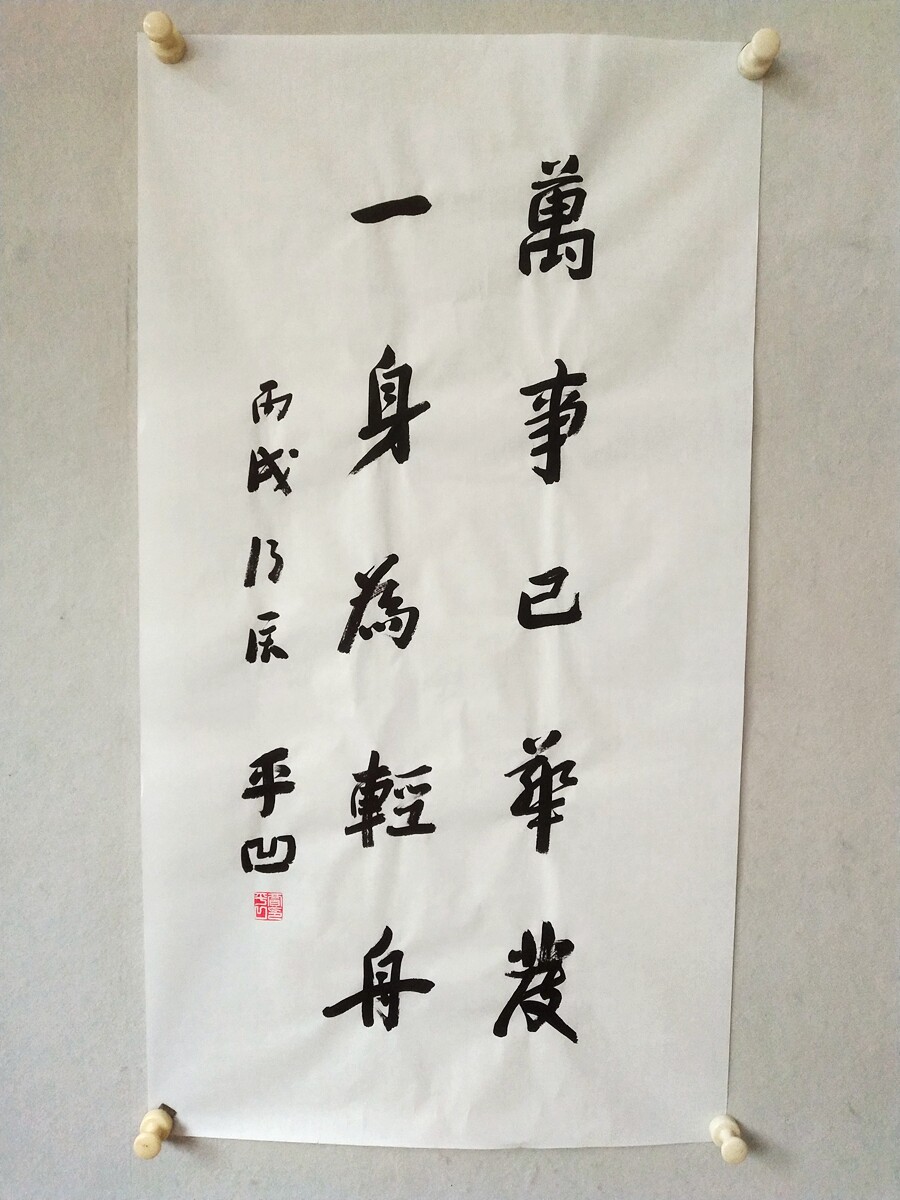 萬事已華發
一身為輕舟
丙戌 平凹